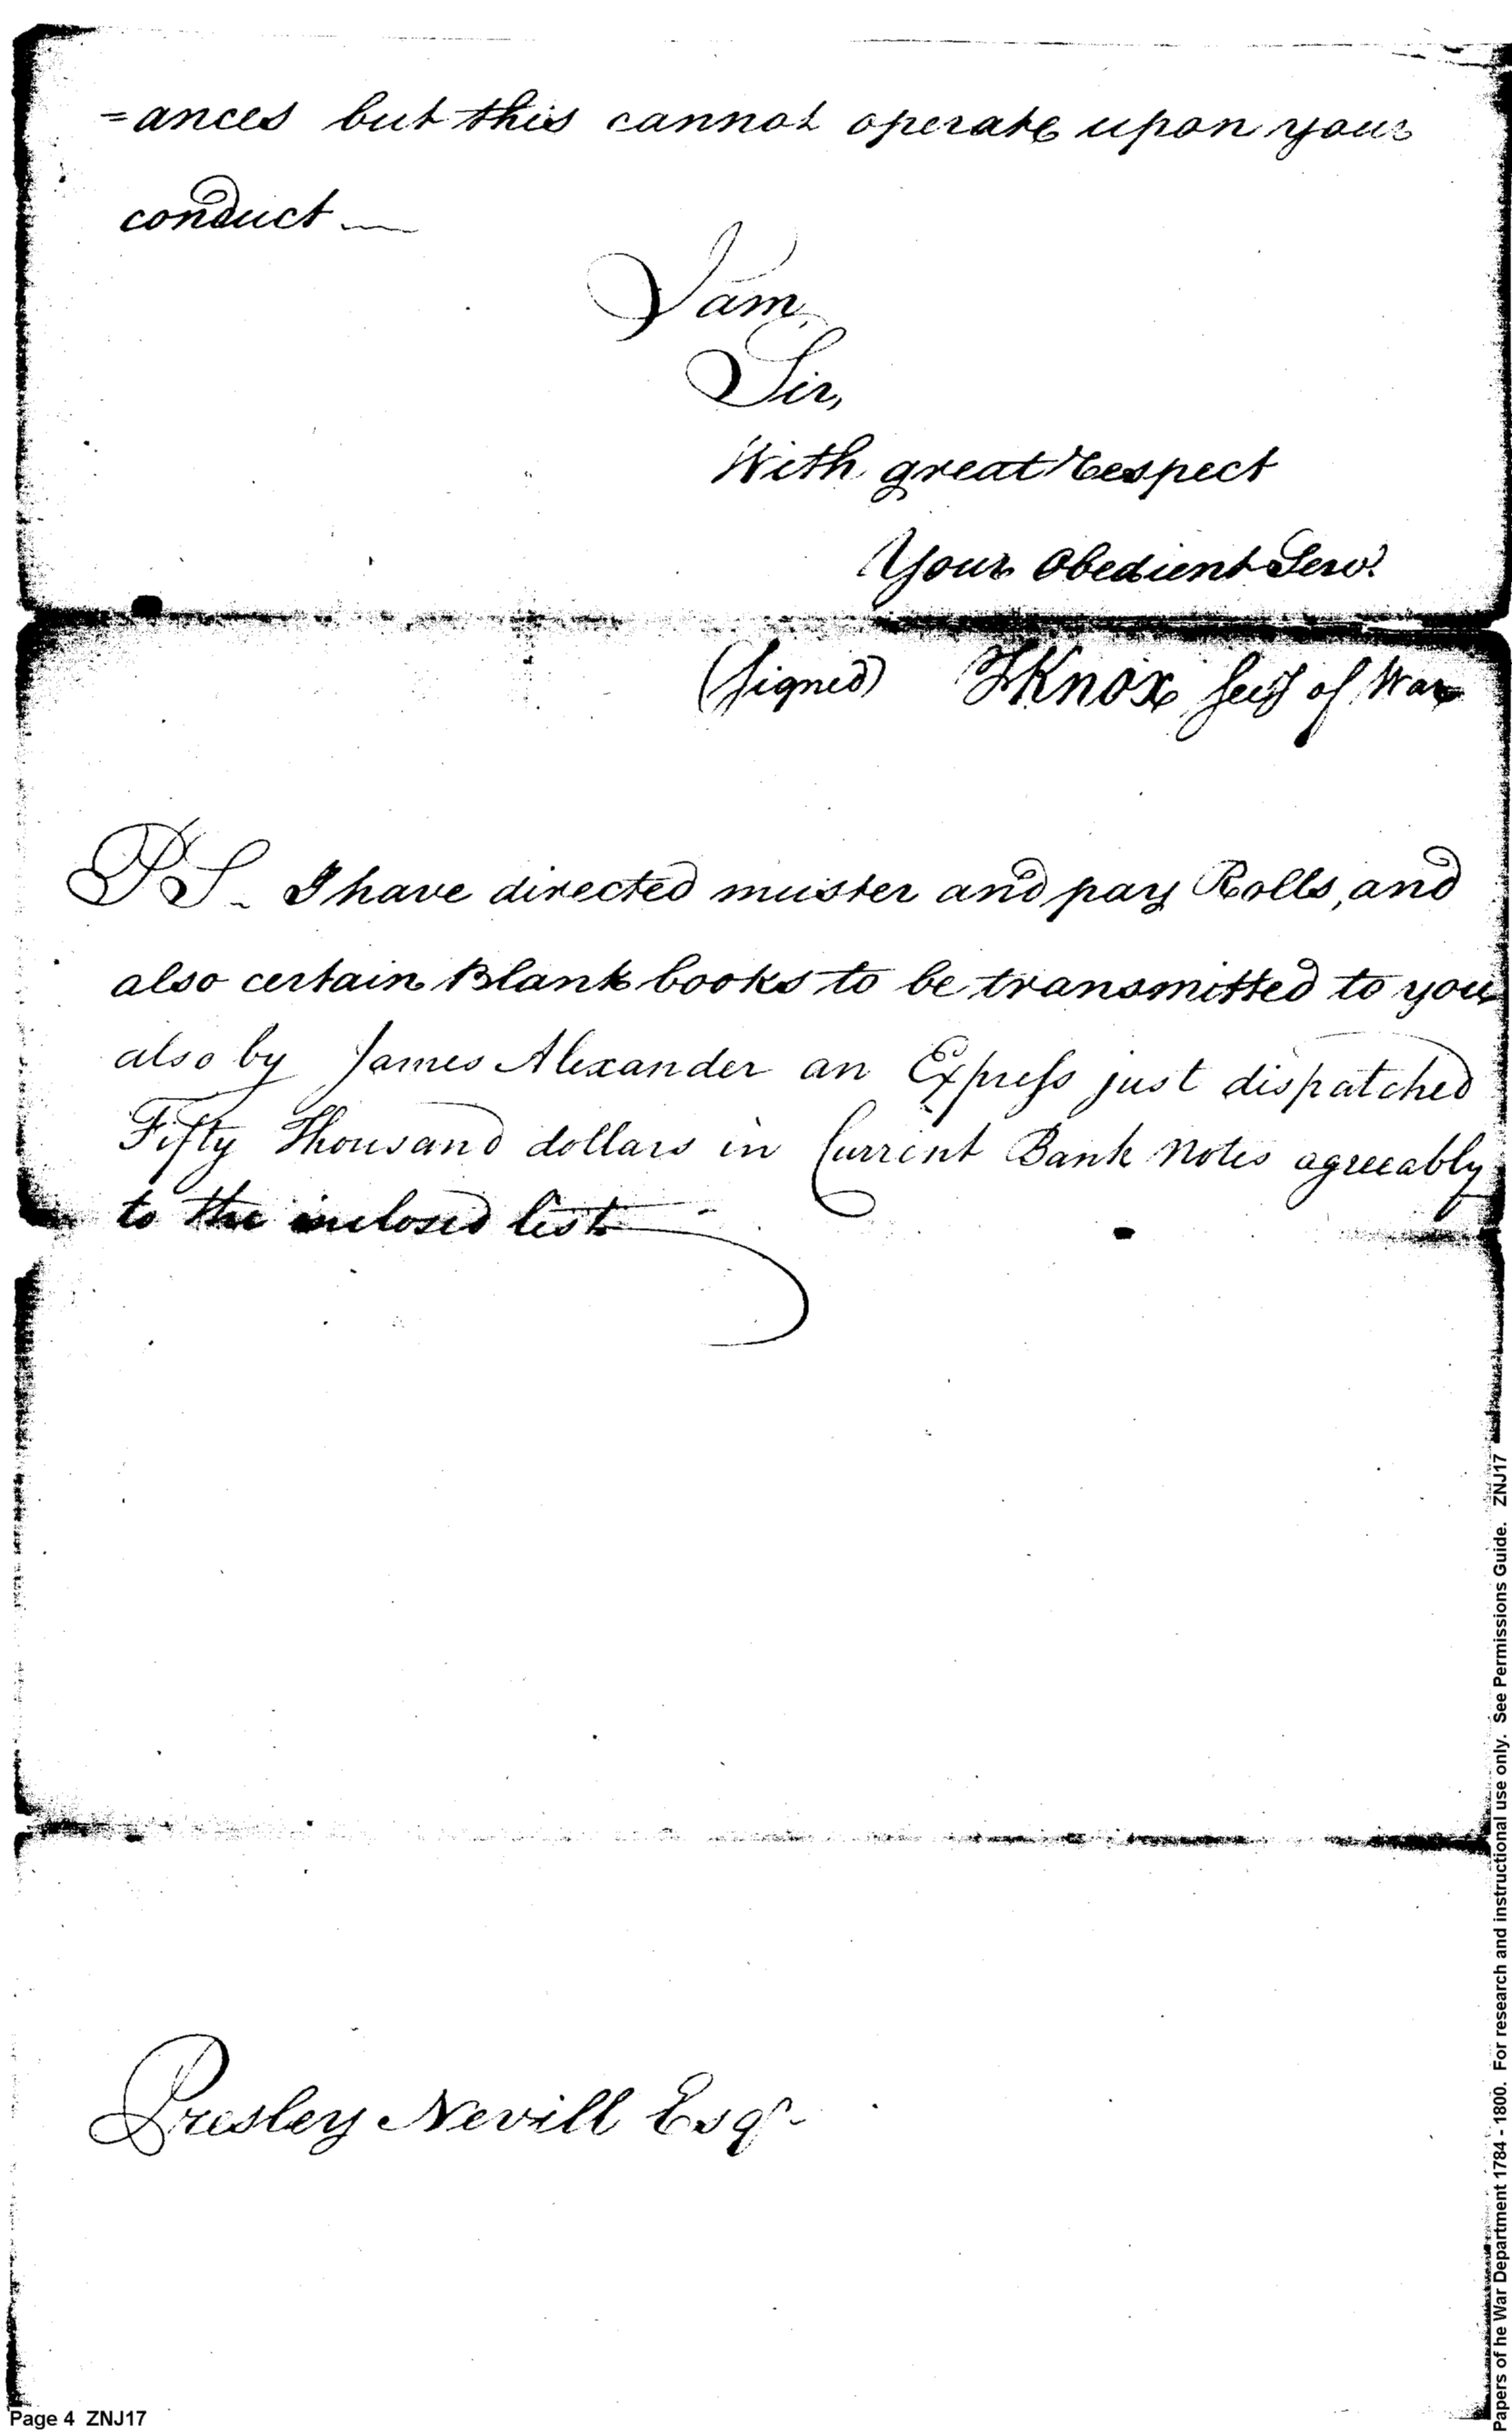 =ances but this cannot operate upon your
conduct —
I am
Sir,
With great respect
Your Obedient Serv.t
(signed) HKnox Secy of War
PS - I have directed muster and pay Rolls, and
also certain Blank books to be transmitted to you
also by James Alexander an Express just dispatched
Fifty Thousand dollars in Current Bank Notes agreeably
to the inclosed list
Presley Nevill Esqr
Page 4 ZNJ17
Papers of he War Department 1784 - 1800. For research and instructional use only. See Permissions Guide. ZNJ17